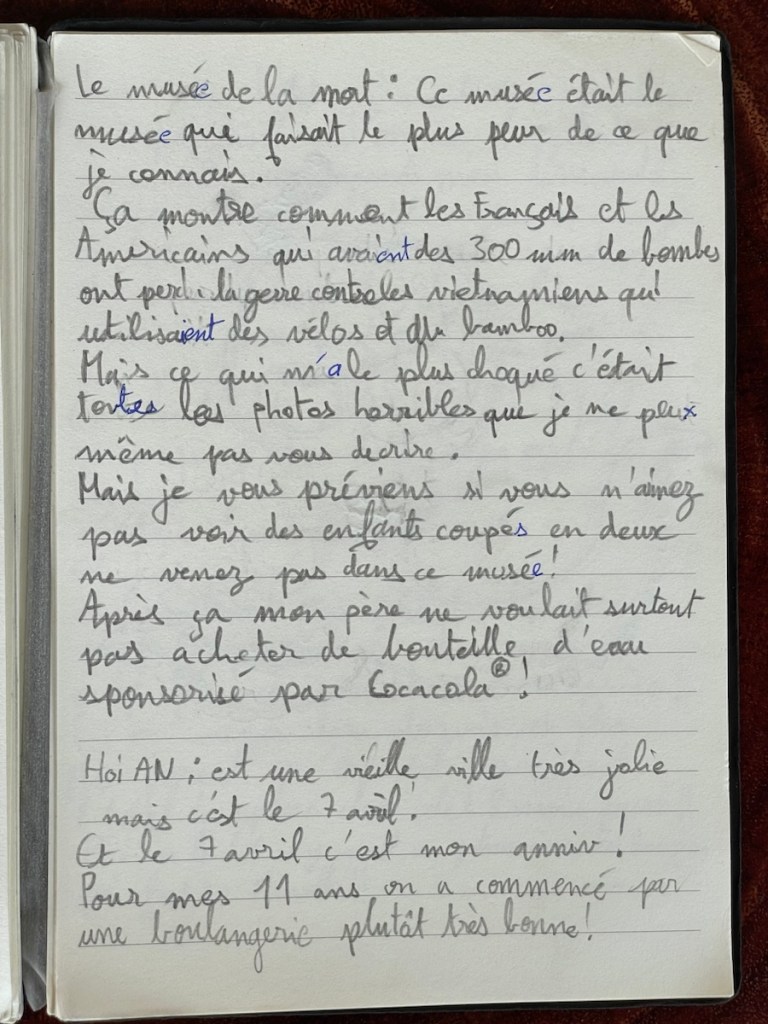 Le musée de la mort : Ce musée était le
musée qui faisait le plus peur de ce que
je connais.
Ça montre comment les Français et les
Americains qui avaient des 300 mm de bombes
ont perdu la gerre contre les vietnamiens qui
utilisaient des vélos et du bamboo.
Mais ce qui m'a le plus choqué c'était
toutes les photos horribles que je ne peux
même pas vous decrire.
Mais je vous préviens si vous n'aimez
pas voir des enfants coupés en deux
ne venez pas dans ce musée !
Après ça mon père ne voulait surtout
pas acheter de bouteille d'eau
sponsorisé par Cocacola® !
Hoi AN : est une vieille ville très jolie
mais c'est le 7 avril !
Et le 7 avril c'est mon anniv !
Pour mes 11 ans on a commencé par
une boulangerie plutôt très bonne !